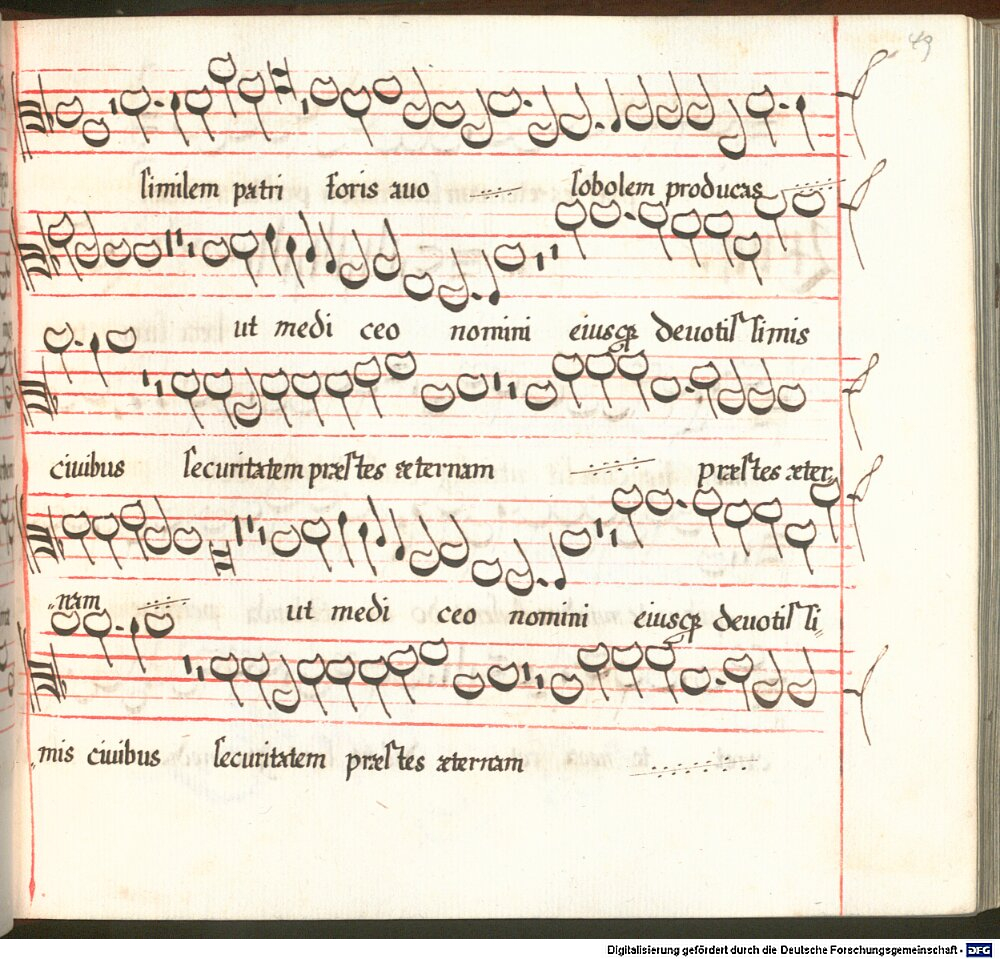 49
similem patri foris auo sobolem producas
ut medi ceo nomini eiusqȝ deuotis simis
ciuibus securitatem præstes æternam præstes æter„
„nam ut medi ceo nomini eiusqȝ deuotis si„
„mis ciuibus securitatem præstes æternam
Digitalisierung gefördert durch die Deutsche Forschungsgemeinschaft - DFG